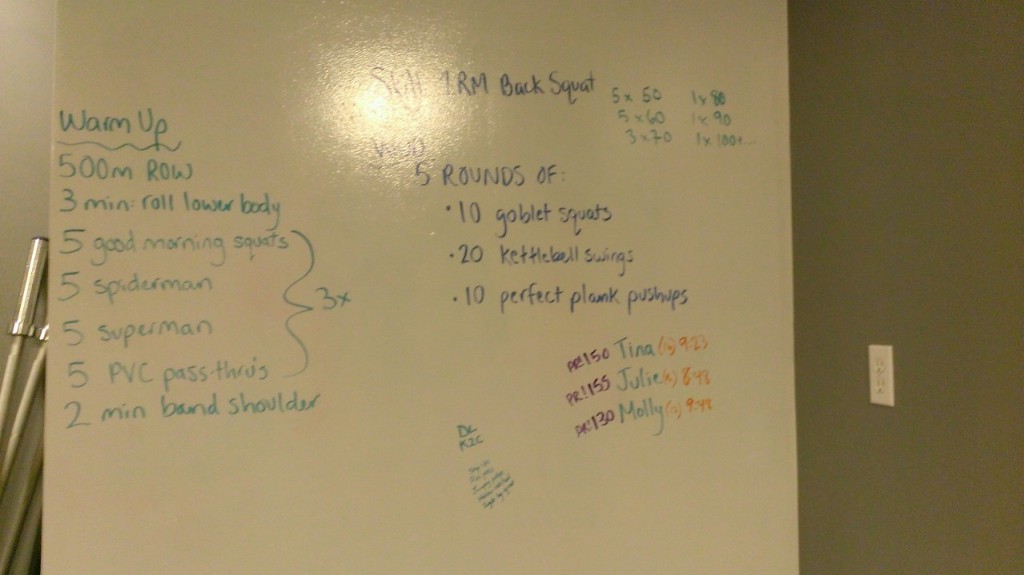 Warm Up
500m ROW
3 min: roll lower body
5 good morning squats
5 spiderman
5 superman
5 PVC pass-thru's
3x
2 min band shoulder
Skill 1RM Back Squat
5 x 50 1 x 80
5 x 60 1 x 90
3 x 70 1 x 100+...
WOD
5 ROUNDS OF:
• 10 goblet squats
• 20 kettlebell swings
• 10 perfect plank pushups
PR! 150 Tina 9:23
PR! 155 Julie 8:48
PR! 130 Molly 9:48
DL
K2C